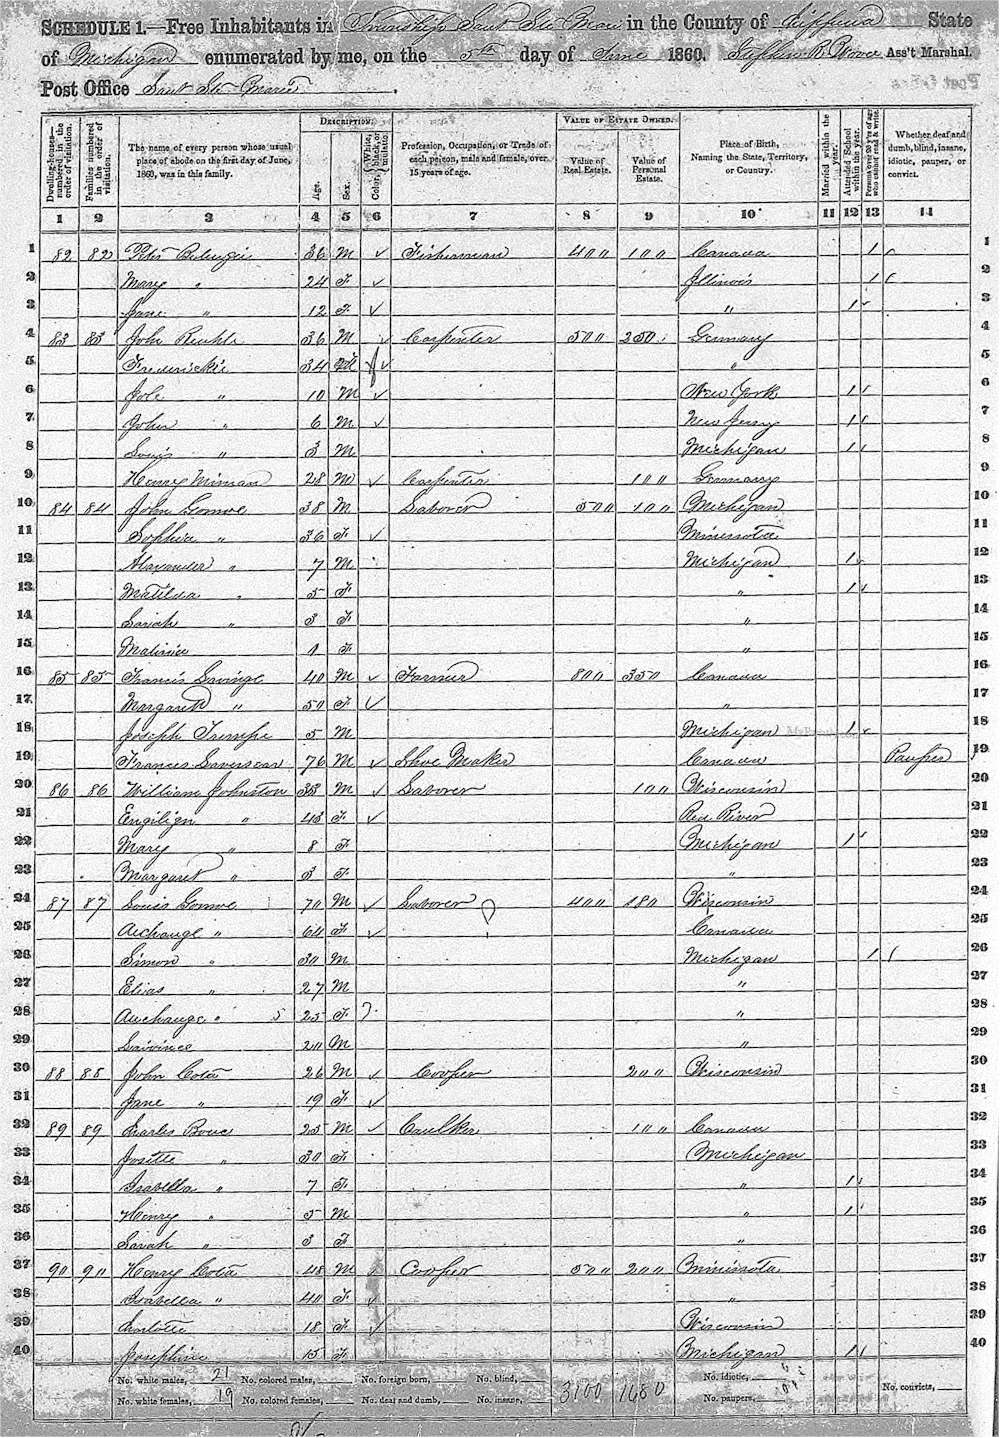 SCHEDULE 1.—Free Inhabitants in Township Saut Ste Marie in the County of Chippewa State
of Michigan enumerated by me, on the 5th day of June 1860. Stephen R Wood Ass't Marshal.
Post Office Saut Ste Marie
Dwelling-houses—numbered in the order of visitation.
Families numbered in the order of visitation.
The name of every person whose usual place of abode on the first day of June, 1860, was in this family.
DESCRIPTION.
Age.
Sex.
Color, {White, black, or mulatto.
Profession, Occupation, or Trade of each person, male and female, over 15 years of age.
VALUE OF ESTATE OWNED.
Value of Real Estate.
Value of Personal Estate.
Place of Birth, Naming the State, Territory, or Country.
Married within the year.
Attended School within the year.
Persons over 20 y'rs of age who cannot read & write.
Whether deaf and dumb, blind, insane, idiotic, pauper, or convict.
1 2 3 4 5 6 7 8 9 10 11 12 13 14
1 82 82 36 M Fisherman 400 100 Canada 1 1
2 Mary " 24 F Illinois 1 2
3 Jane " 12 F " 1 3
4 83 83 John 36 M Carpenter 500 250 Germany 4
5 34 " 5
6 " 10 M New York 1 6
7 John " 6 M New Jersey 1 7
8 Louis " 3 M Michigan 1 8
9 Henry 28 M Carpenter 100 Germany 9
10 84 84 John Gornoe 38 M Laborer 500 100 Michigan 10
11 Sophia " 36 F Minissota 11
12 Alexander " 7 M Michigan 1 12
13 Matilda " 5 F " 1 13
14 Sarah " 3 F " 14
15 1 F " 15
16 85 85 Francis Lavinge 40 M Farmer 800 350 Canada 16
17 Margarett " 50 F " 17
18 Joseph Trempe 5 M Michigan 1 18
19 Frances 76 M Shoe Maker Canada Pauper 19
20 86 86 William Johnston 38 M Laborer 100 Wisconsin 20
21 " 45 F Red River 21
22 Mary " 8 F Michigan 1 22
23 Margaret " 3 F " 23
24 87 87 Louis Gornoe 70 M Laborer 400 180 Wisconsin 24
25 Archange " 64 F Canada 25
26 Simon " 30 M Michigan 1 26
27 Elias " 27 M " 27
28 Archange " 25 F " 28
29 20 M " 29
30 88 88 John Cota 26 M Cooper 200 Wisconsin 30
31 Jane " 19 F 31
32 89 89 Charles 25 M Caulker 100 Canada 32
33 Josette " 30 F Michigan 33
34 Isabella " 7 F " 1 34
35 Henry " 5 M " 1 35
36 Sarah " 3 F " 36
37 90 90 Henry Cota 48 M Cooper 500 200 Minissota 37
38 Isabella " 40 F " 38
39 Charlotte 18 F Wisconsin 39
40 Josephine 15 F Michigan 1 40
No. white males, 21 No. colored males, No. foreign born, No. blind, 3100 1680 No. idiotic, No. convicts,
No. white females, 19 No. colored females, No. deaf and dumb, No. insane, No. paupers,